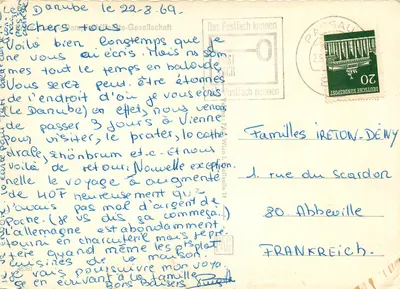 Le Danube le 22-8-69.
Chers tous
Voilà bien longtemps que je
ne vous ai écris. Mais nous som
mes tout le temps en balade.
Vous serez peut être étonnés
de l'endroit d'où je vous écris
Le Danube) en effet, nous venons
de passer 3 jours à Vienne
pour visiter, le prater, la cathé
drale, schönbrum etc. Et nous
voilà de retour. Nouvelle exception
nelle le voyage a augmenté
de 40F heureusement que
j'avais pas mal d'argent de
Poche. (je vs dis ça comme ça..)
L'allemagne est abondamment
fourni en charcuterie mais je pré
fère quand même les ptts plat
cuisinés de la maison.
Je vais poursuivre mon voyo
ge en écrivant à la famille
Bons Baisers
PASSAU
20
DEUTSCHE BUNDESPOST
Familles IRETON-DENY
1 rue du scardon
80 Abbeville
FRANKREICH.